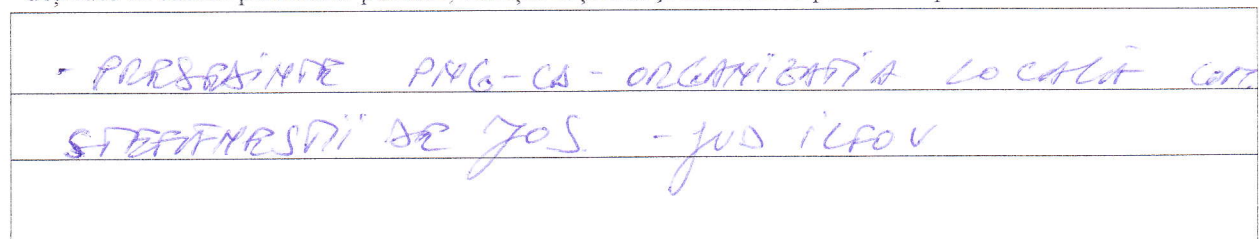 - PREȘEDINTE PNG-CD - ORGANIZAȚIA LOCALĂ COM
ȘTEFĂNEȘTII DE JOS - JUD ILFOV